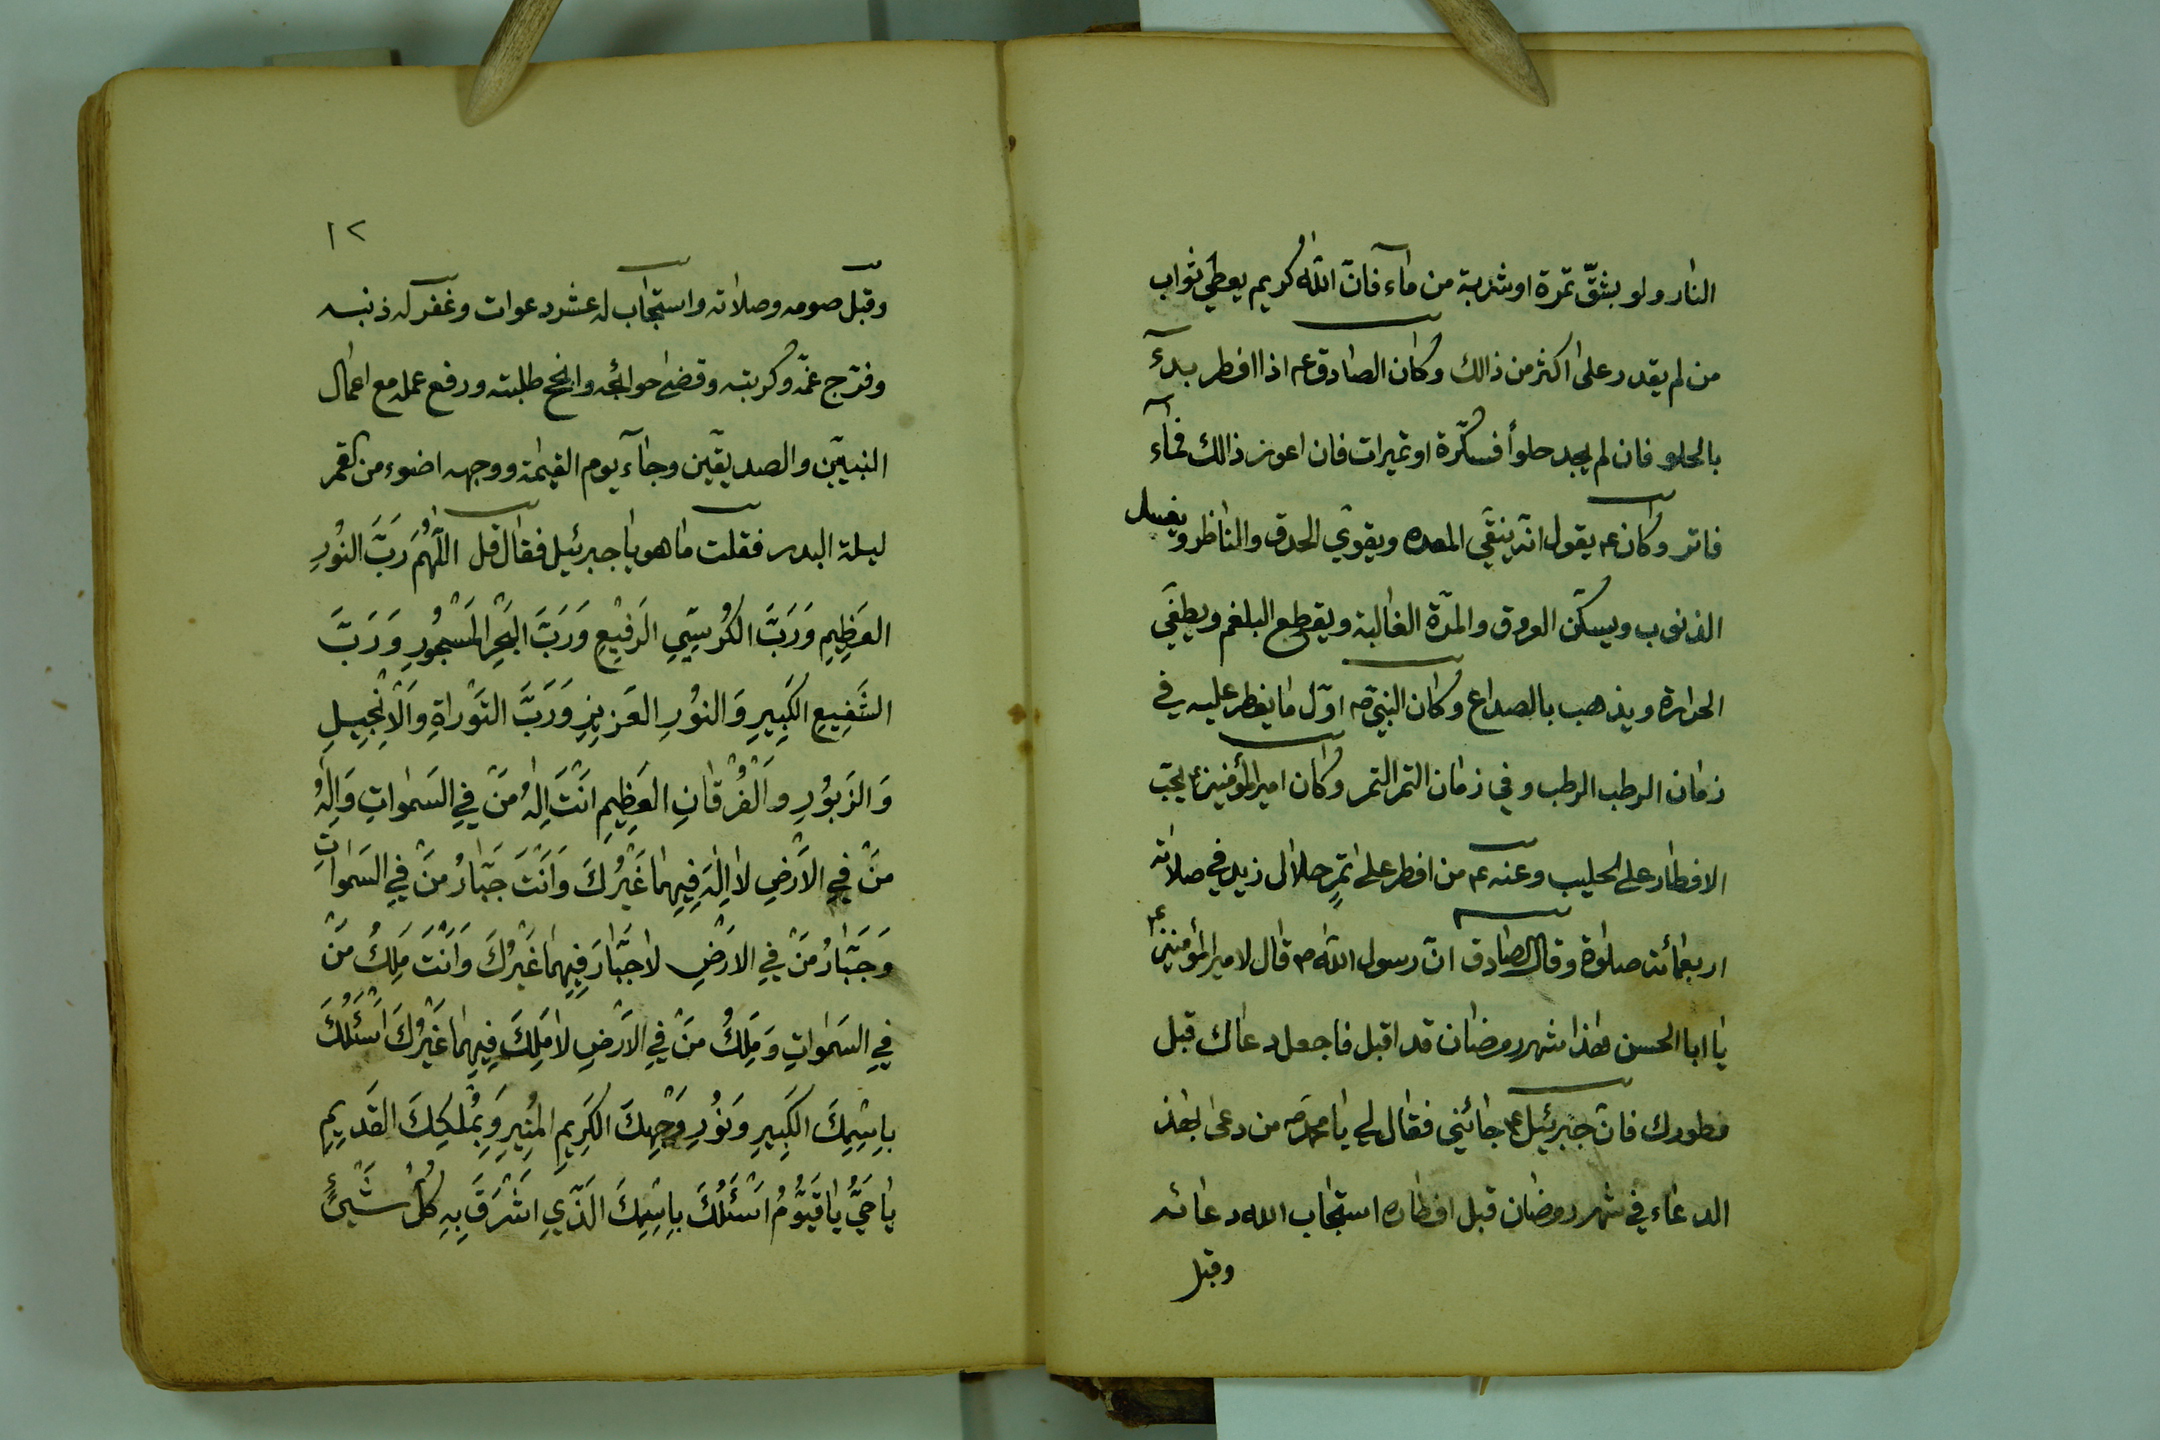 النار ولو بشقّ تمرة او شربة من مآء فانّ الله كريم يعطي ثواب
من لم يقدر على اكثر من ذالك وكان الصادق عم اذا افطر بدءَ
بالحلو فان لم يجد حلواً فسكّرة او تميرات فان اعوز ذالك فمآء
فاتر وكان عم يقول انّه ينقّي المعده ويقوّي الحدق والناظر ويغسل
الذنوب ويسكّن العروق والمرّة الغالبة ويقطع البلغم ويطفي
الحرارة ويذهب بالصداع وكان النبيّ صم اوّل ما يفطر عليه في
زمان الرطب الرطب وفي زمان التمر التمر وكان امير المؤمنين ع يحبّ
الافطار على الحليب وعنه عم من افطر على تمرٍ حلال زيد في صلاته
اربعمائة صلوة وقال الصادق ع انّ رسول الله ص قال لامير المؤمنين ع
يا ابا الحسن هذا شهر رمضان قد اقبل فاجعل دعاك قبل
فطورك فانّ جبرئيل ع جائني فقال لي يا محمد ص من دعى بهذ
الدعاء في شهر رمضان قبل افطاره استجاب الله دعائه
وقبل
١٢
وقبل صومه وصلاته واستجاب له عشر دعوات وغفر له ذنبه
وفرّج غمّه وكربته وقضى حوائجه وانجح طلبته ورفع عمله مع اعمال
النبيّين والصديقين وجآء يوم القيمة ووجهه اضوء من القمر
ليلة البدر فقلت ما هو يا جبرئيل فقال قل اللّهُمَ رَبَّ النوُرِ
العَظِيمِ وَرَبَّ الكُرسِيّيِ الرَفيِعِ وَرَبَّ البَحْرِ المَسْجُورِ وَرَبَّ
الشَفِيعِ الكَبِيرِ وَالنوُرِ العَزيِزِ وَرَبَّ التَوْراةِ وَالْاِنْجِيلِ
وَالزَبوُرِ وَالْفُرْقانِ العَظِيمِ اَنْتَ اِلهُ مَنْ فيِ السَمواتِ وَاِلهُ
مَنْ فيِ الاَرْضِ لا اِلهَ فيِهِما غَيْرُكَ وَاَنْتَ جَبّارُ مَنْ فيِ السَمواتِ
وَجَبّارُ مَنْ فيِ الارَضِ لا جَبّارَ فيِهِما غَيْرُكَ وَاَنْتَ مَلِكُ مَنْ
فيِ السَمواتِ وَمَلِكُ مَنْ فيِ الاَرْضِ لا مَلِكَ فيِهِما غَيْرُكَ اَسْئَلُكَ
بِاسْمِكَ الكَبِيرِ وَنوُرِ وَجْهِكَ الكَرِيمِ المُنِيرِ وَبِمُلْكِكَ القَدِيمِ
يا حَيُّ يا قَيّوُمُ اَسْئَلُكَ بِاسْمِكَ الَذّيِ اَشْرَقَ بِهِ كُلُ شَيْئٍ